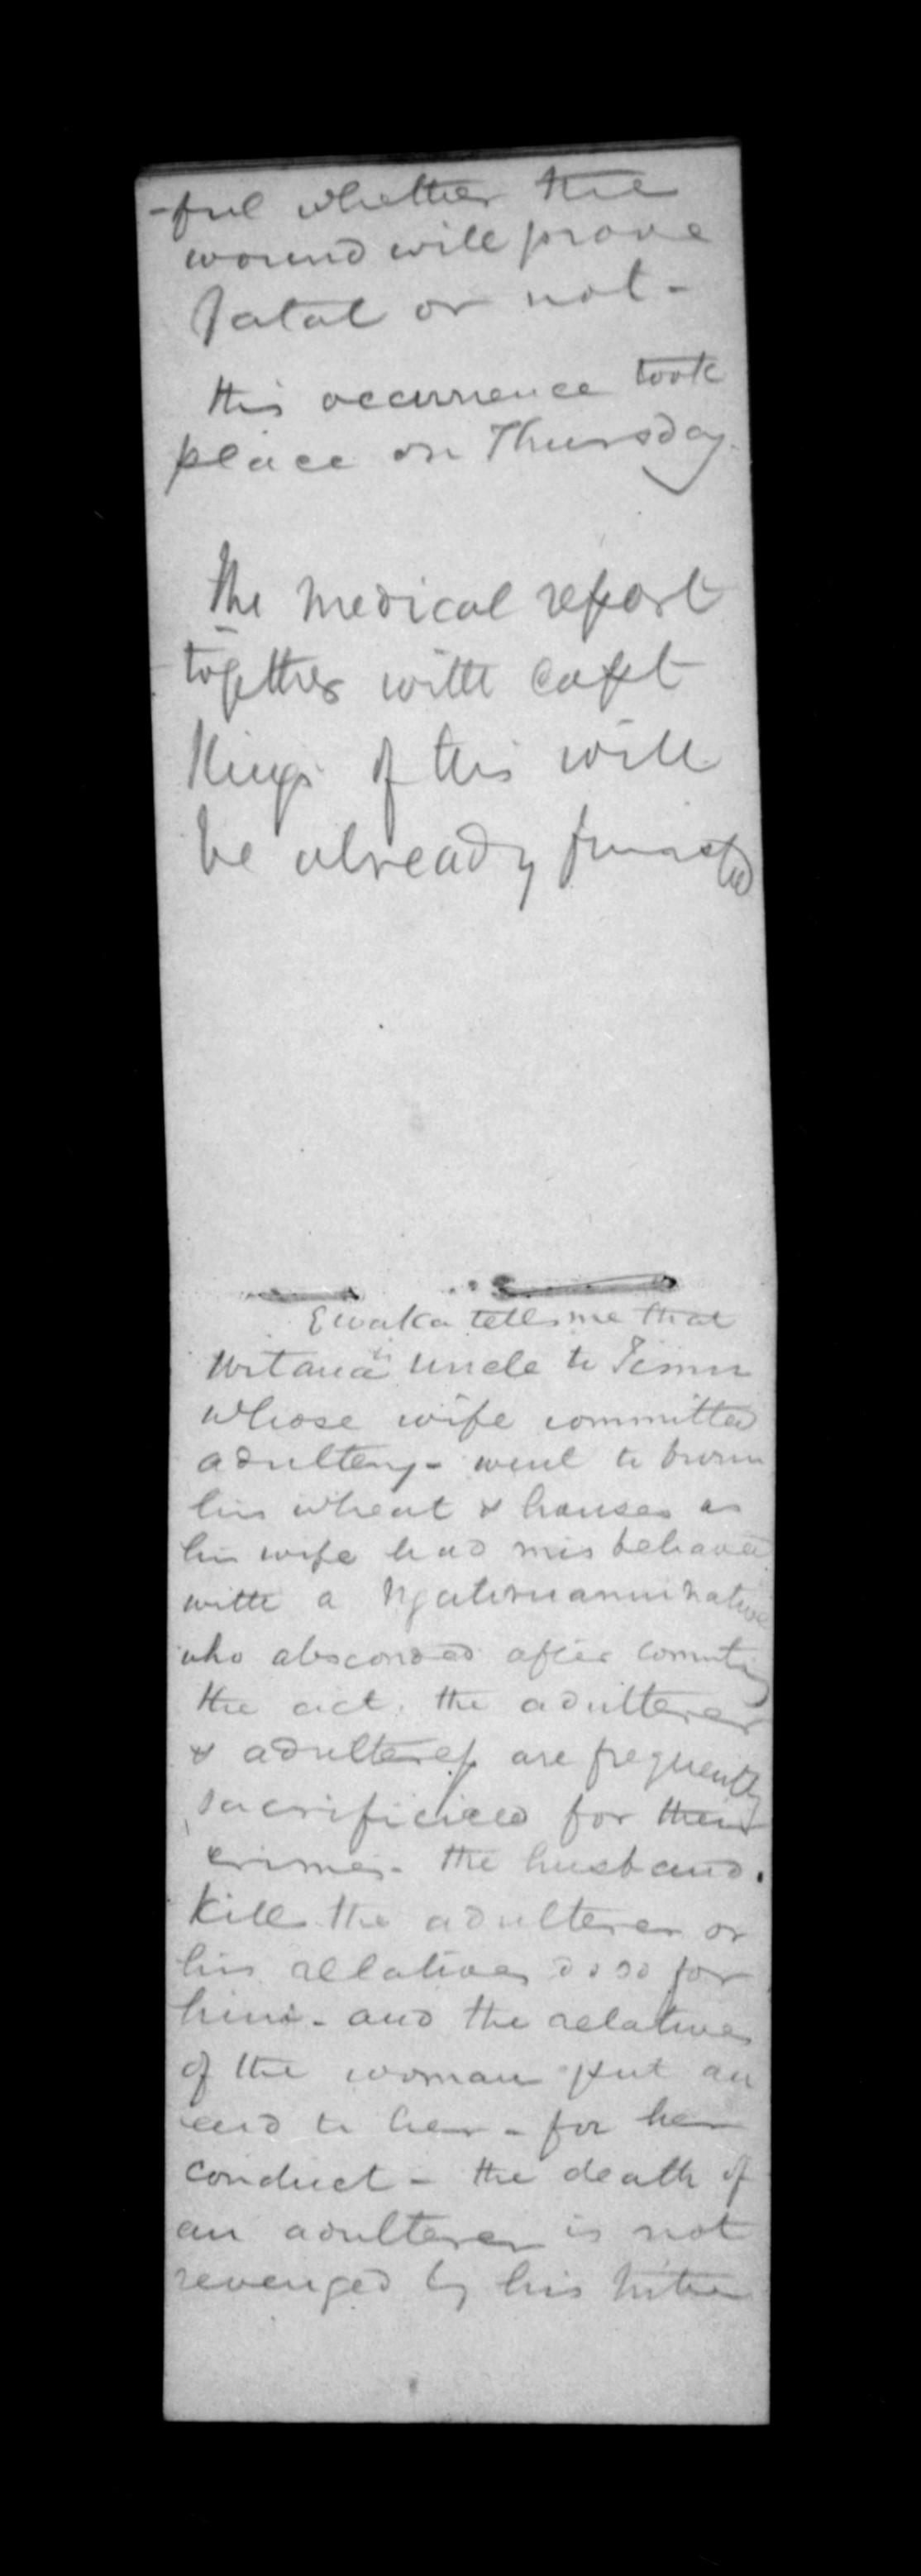 -ful whether the
wound will prove
fatal or not -
this occurrence took
place on Thursday.
The medical report
together with Capt
Kings of this will
be already
Ewaka tells me that
uncle to
whose wife committed
adultery - went to burn
his wheat & houses as
his wife had misbehaved
with a native
who absconded after
the act. the adulterer
& adulteress are frequently
for their
crimes - the husband
kills the adulterer or
his relatives do so for
him - and the relatives
of the woman put an
end to her - for her
conduct - the death of
an adulterer is not
revenged by his tribe